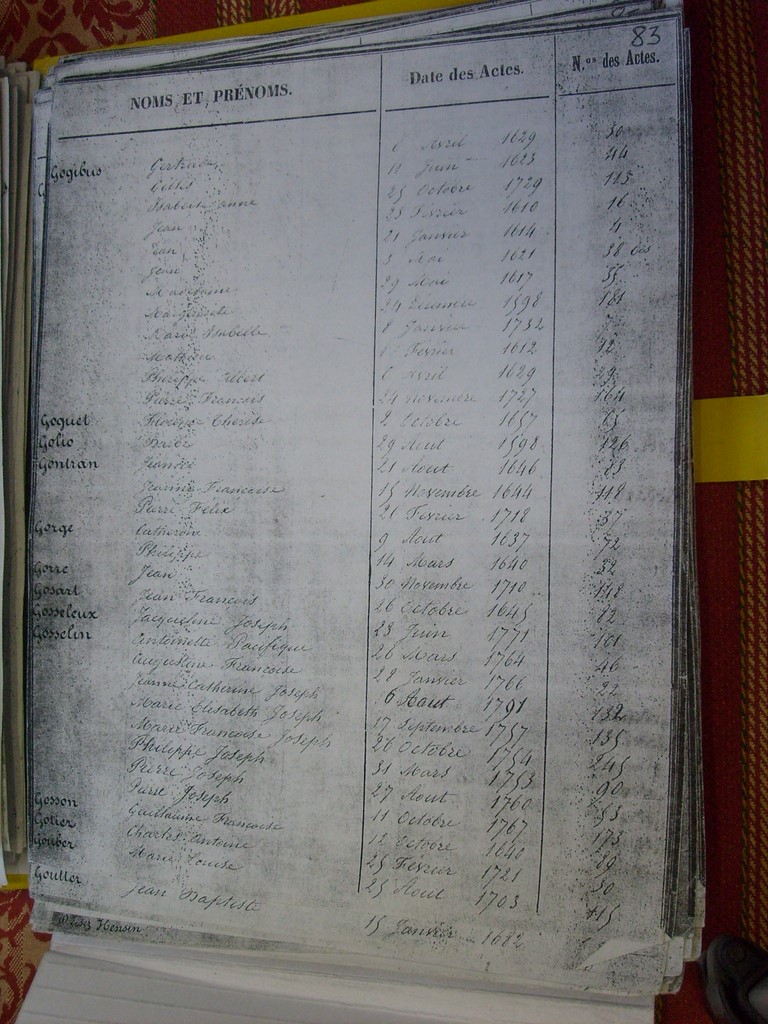 83
NOMS ET PRÉNOMS. Date des Actes. N.os des Actes.
Gogibus Gertrude 6 Avril 1629 30
Gilles 11 Juin 1623 44
Isabelle Anne 25 Octobre 1729 115
Jean 23 Février 1610 16
Jean 21 Janvier 1614 4
Jean 3 Mai 1621 38 bis
29 Mai 1617 35
Marguerite 24 1598 181
Marie Isabelle 8 Janvier 1732
Mathieu Février 1612 12
Philippe Albert 6 Avril 1629 29
Pierre François 24 Novembre 1727 164
Goquet Florence Thérèse 2 Octobre 1657 65
Golio 29 Aout 1598 126
Gontran 21 Aout 1646 83
Jeanne Françoise 15 Novembre 1644 118
Pierre Félix 21 Février 1718 37
Gorge Catherine 9 Aout 1637 72
Philippe 14 Mars 1640 32
Gorre Jean 30 Novembre 1710 118
Gosart Jean François 26 Octobre 1645 82
Gosseleux Jacqueline Joseph 23 Juin 1771 101
Gosselin Antoinette Pacifique 26 Mars 1764 46
Augustine Françoise 28 Janvier 1766 22
Jeanne Catherine Joseph 6 Aout 1791 132
Marie Elisabeth Joseph 17 Septembre 1757 135
Marie Françoise Joseph 26 Octobre 1754 245
Philippe Joseph 31 Mars 1753 90
Pierre Joseph 27 Aout 1760 153
Pierre Joseph 11 Octobre 1767 173
Gosson Guillaume Françoise 12 Octobre 1640 89
Gotier Charles Antoine 25 Février 1721 30
Gouber Marie Louise 25 Aout 1703 115
Goutter Jean Baptiste 15 Janvier 1682